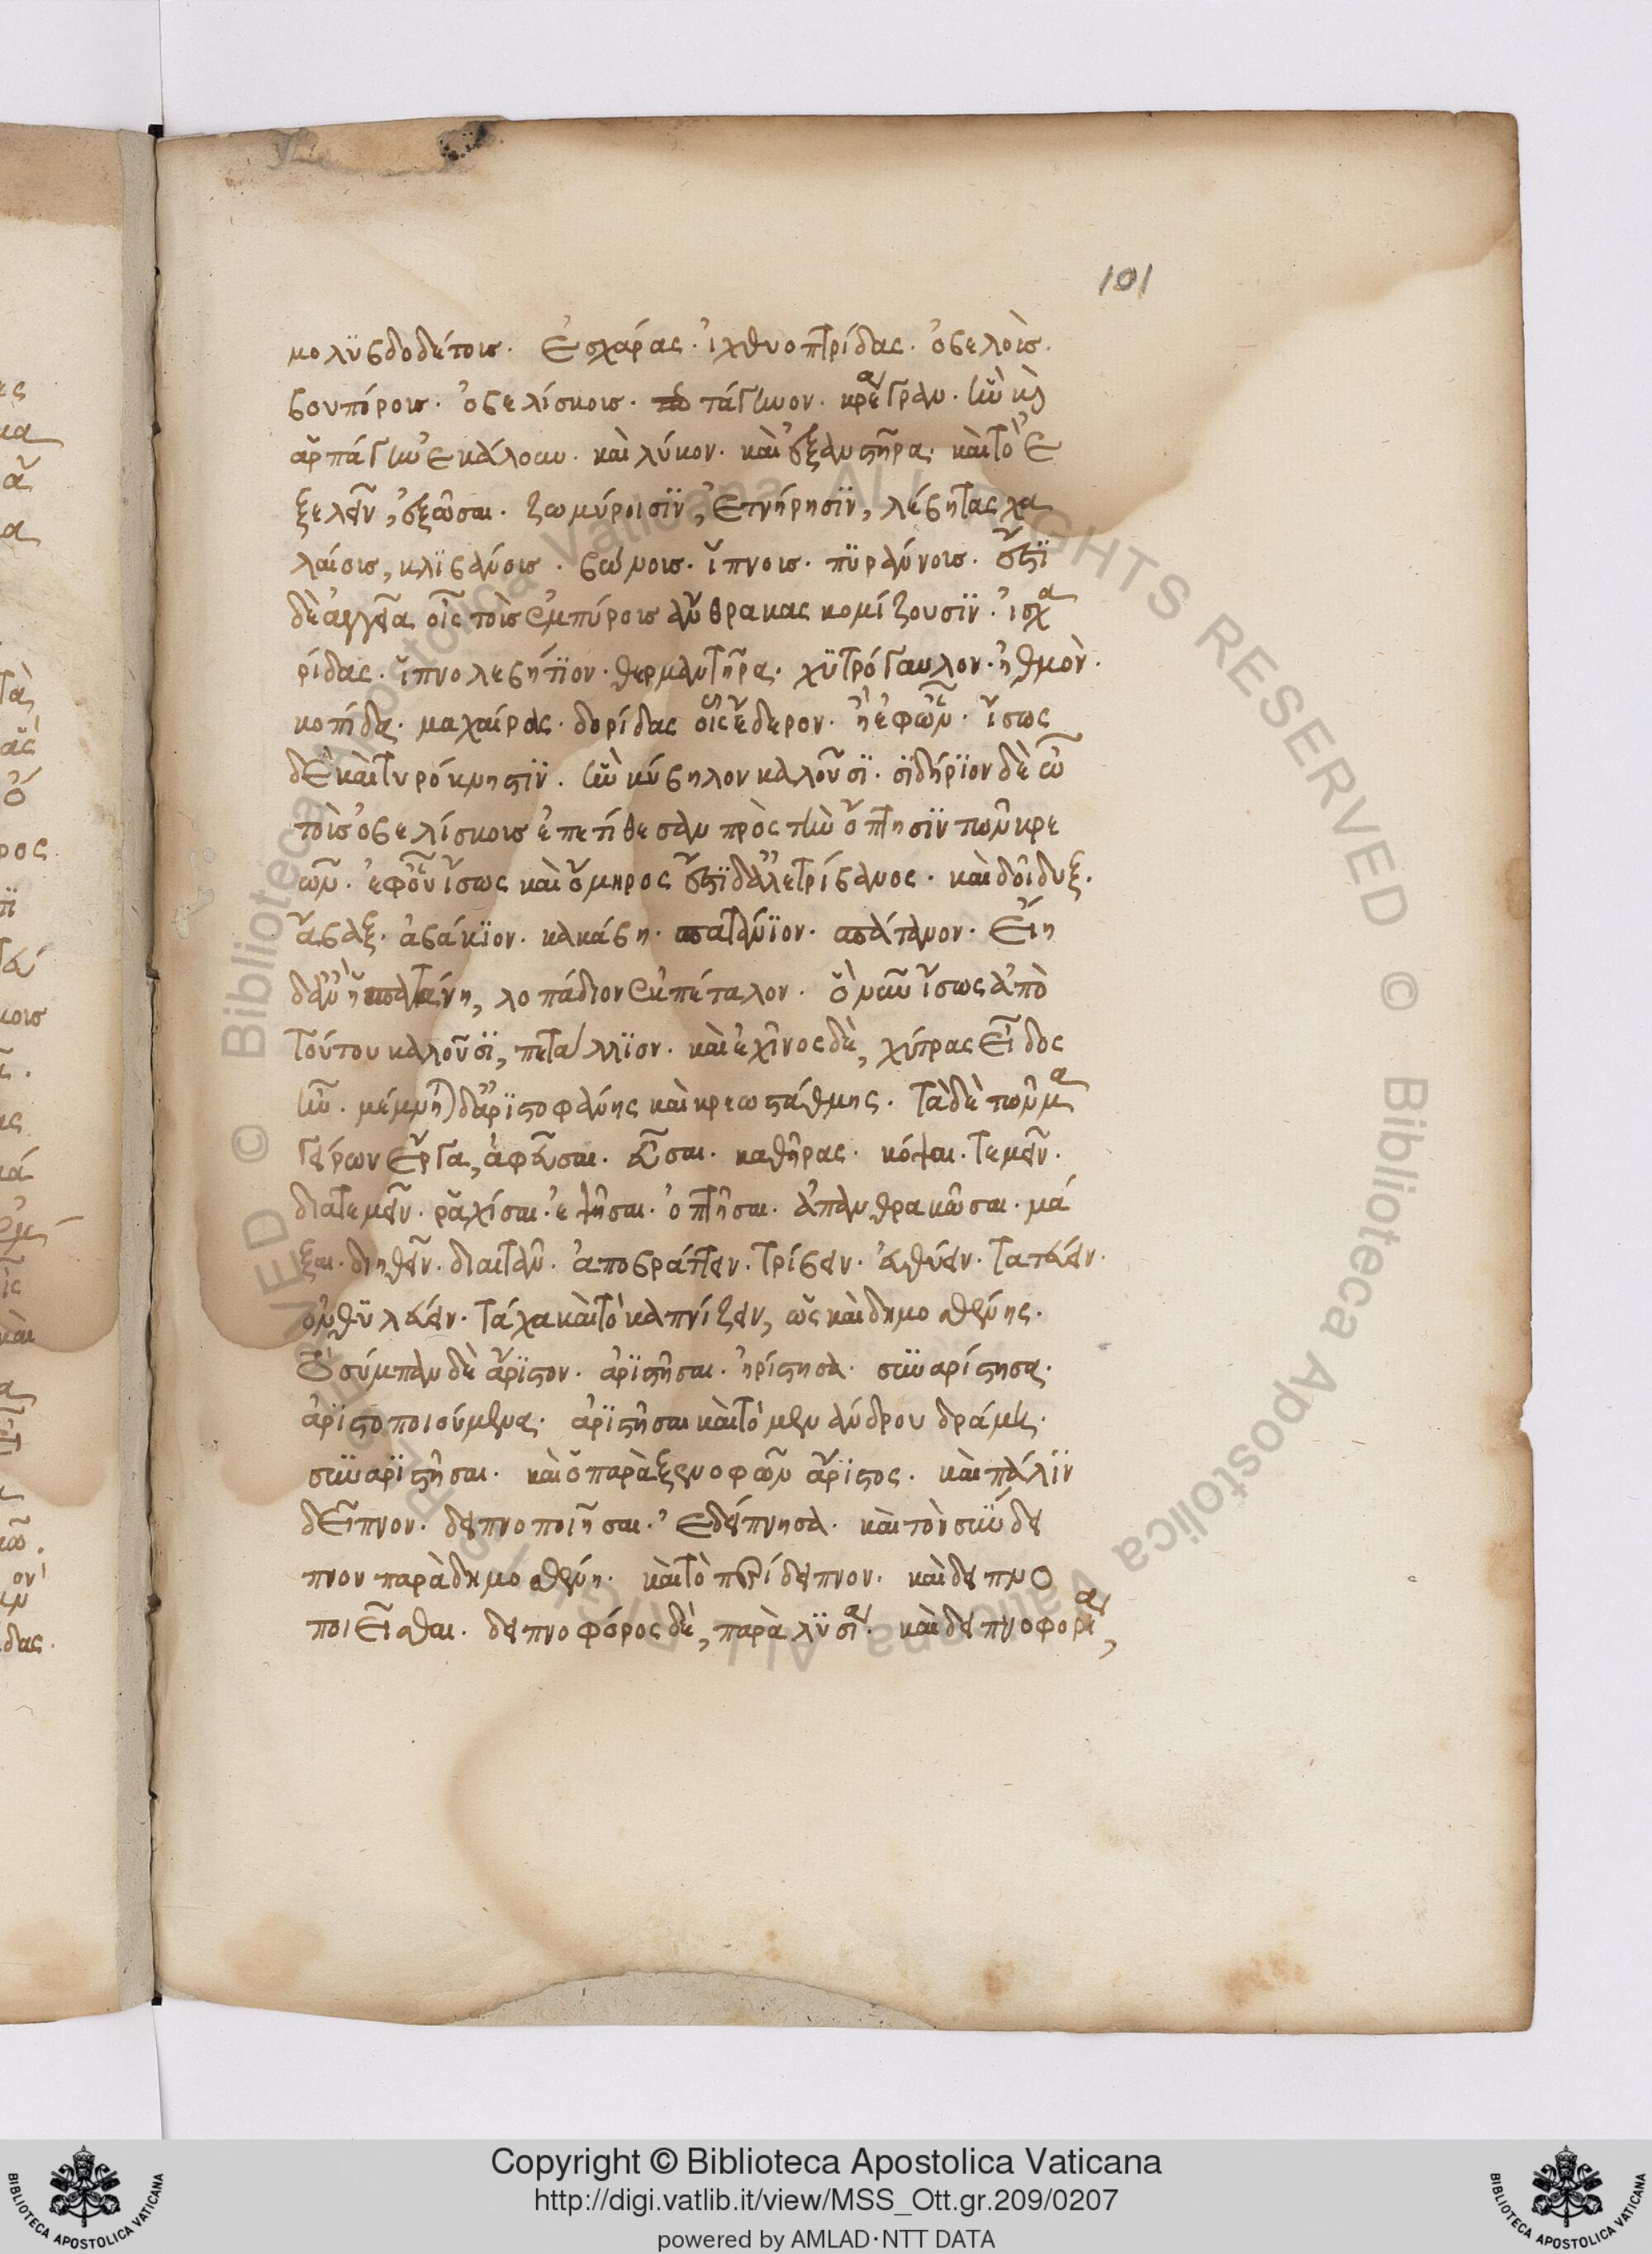 101
μολϋβδοδέτοις. ἐσχάρας. ἰχθυοπτρίδας. ὀβελοὶς.
βουπόροις. ὀβελίσκοις. τάγηνον. κρεάγραν. ἣν κὶ
ἁρπάγην ἐκάλουν. καὶ λύκον. καὶ ἐξαυστῆρα. καὶ τὸ ἐ
ξελεῖν, ἐξᾶυσαι. ζωμύροισϊν, ἐτνήρησϊν, λέβητας χα
λαίσις, κλϊβάνοις. βώμοις. ἵπνοις. πϋραύνοις. ἔστϊ
δὲ ἀγγεῖα οἷς τοὶς ἐμπύροις ἄνθρακας κομίζουσϊν. ἰσχα
ρίδας. ἵπνολεβήτϊον. θερμαντῆρα. χϋτρόγαυλον. ἠθμὸν.
κοπίδα. μαχαίρας. δορίδας οἷς ἔδερον. ἢ ἐφῶν. ἴσως
δὲ καὶ τυρόκνηστϊν. ἣν κύβηλον καλοῦσϊ. σϊδήρϊον δὲ ὧ
τοὶς ὀβελίσκοις ἐπετίθεσαν πρὸς τὴν ὄπτησϊν τῶν κρε
ῶν. ἐφοῦ ἴσως καὶ ὅμηρος ἔστϊ δἀλετρίβανος. καὶ δοῖδυξ.
ἄβαξ. ἀβάκϊον. κακάβη. πατάνϊον. πάτανον. εἴη
δἂν ἡ πατάνη, λοπάδιον ἐκπέταλον. ὃ νῦν ἴσως ἀπὸ
τούτου καλοῦσϊ, πετάλλϊον. καὶ ἐχῖνος δὲ, χύτρας εἶδος
ἦν. μέμνηται δἀρϊστοφάνης καὶ κρεωστάθμης. τὰ δὲ τῶν μα
γείρων ἔργα, ἀφεῦσαι. εὖσαι. καθῆρας. κόψαι. τεμεῖν.
διατεμεῖν. ρᾶχίσαι. ἑψῆσαι. ὀπτῆσαι. ἀπανθρακῶσαι. μά
ξαι. διηθεῖν. διαιτᾶν. ἀποβράττειν. τρίβειν. ἀθύειν. ταπάειν.
ὀνθϋλεύειν. τάχα καὶ τὸ καπνίζειν, ὡς καὶ δημοσθένης.
τὸ σύμπαν δὲ ἄρϊστον. ἀρϊστῆσαι. ἠρίστησα. συναρίστησα.
ἀρϊστοποιούμενα. ἀρϊστῆσαι καὶ τὸ μενάνδρου δράμα.
συναρϊστῆσαι. καὶ ὁ παρὰ ξενοφῶν ἄρϊστος. καὶ πάλϊν
δεῖπνον. δειπνοποιῆσαι. ἐδείπνησα. καὶ τὸν σύνδει
πνον παρὰ δημοσθένη. καὶ τὸ περίδειπνον. καὶ δειπνο
ποιεῖσθαι. δειπνοφόρος δὲ, παρὰ λϋσία. καὶ δειπνοφορία,
Copyright © Biblioteca Apostolica Vaticana
http://digi.vatlib.it/view/MSS_Ott.gr.209/0207
powered by AMLAD·NTT DATA
BIBLIOTECA APOSTOLICA VATICANA
BIBLIOTECA APOSTOLICA VATICANA